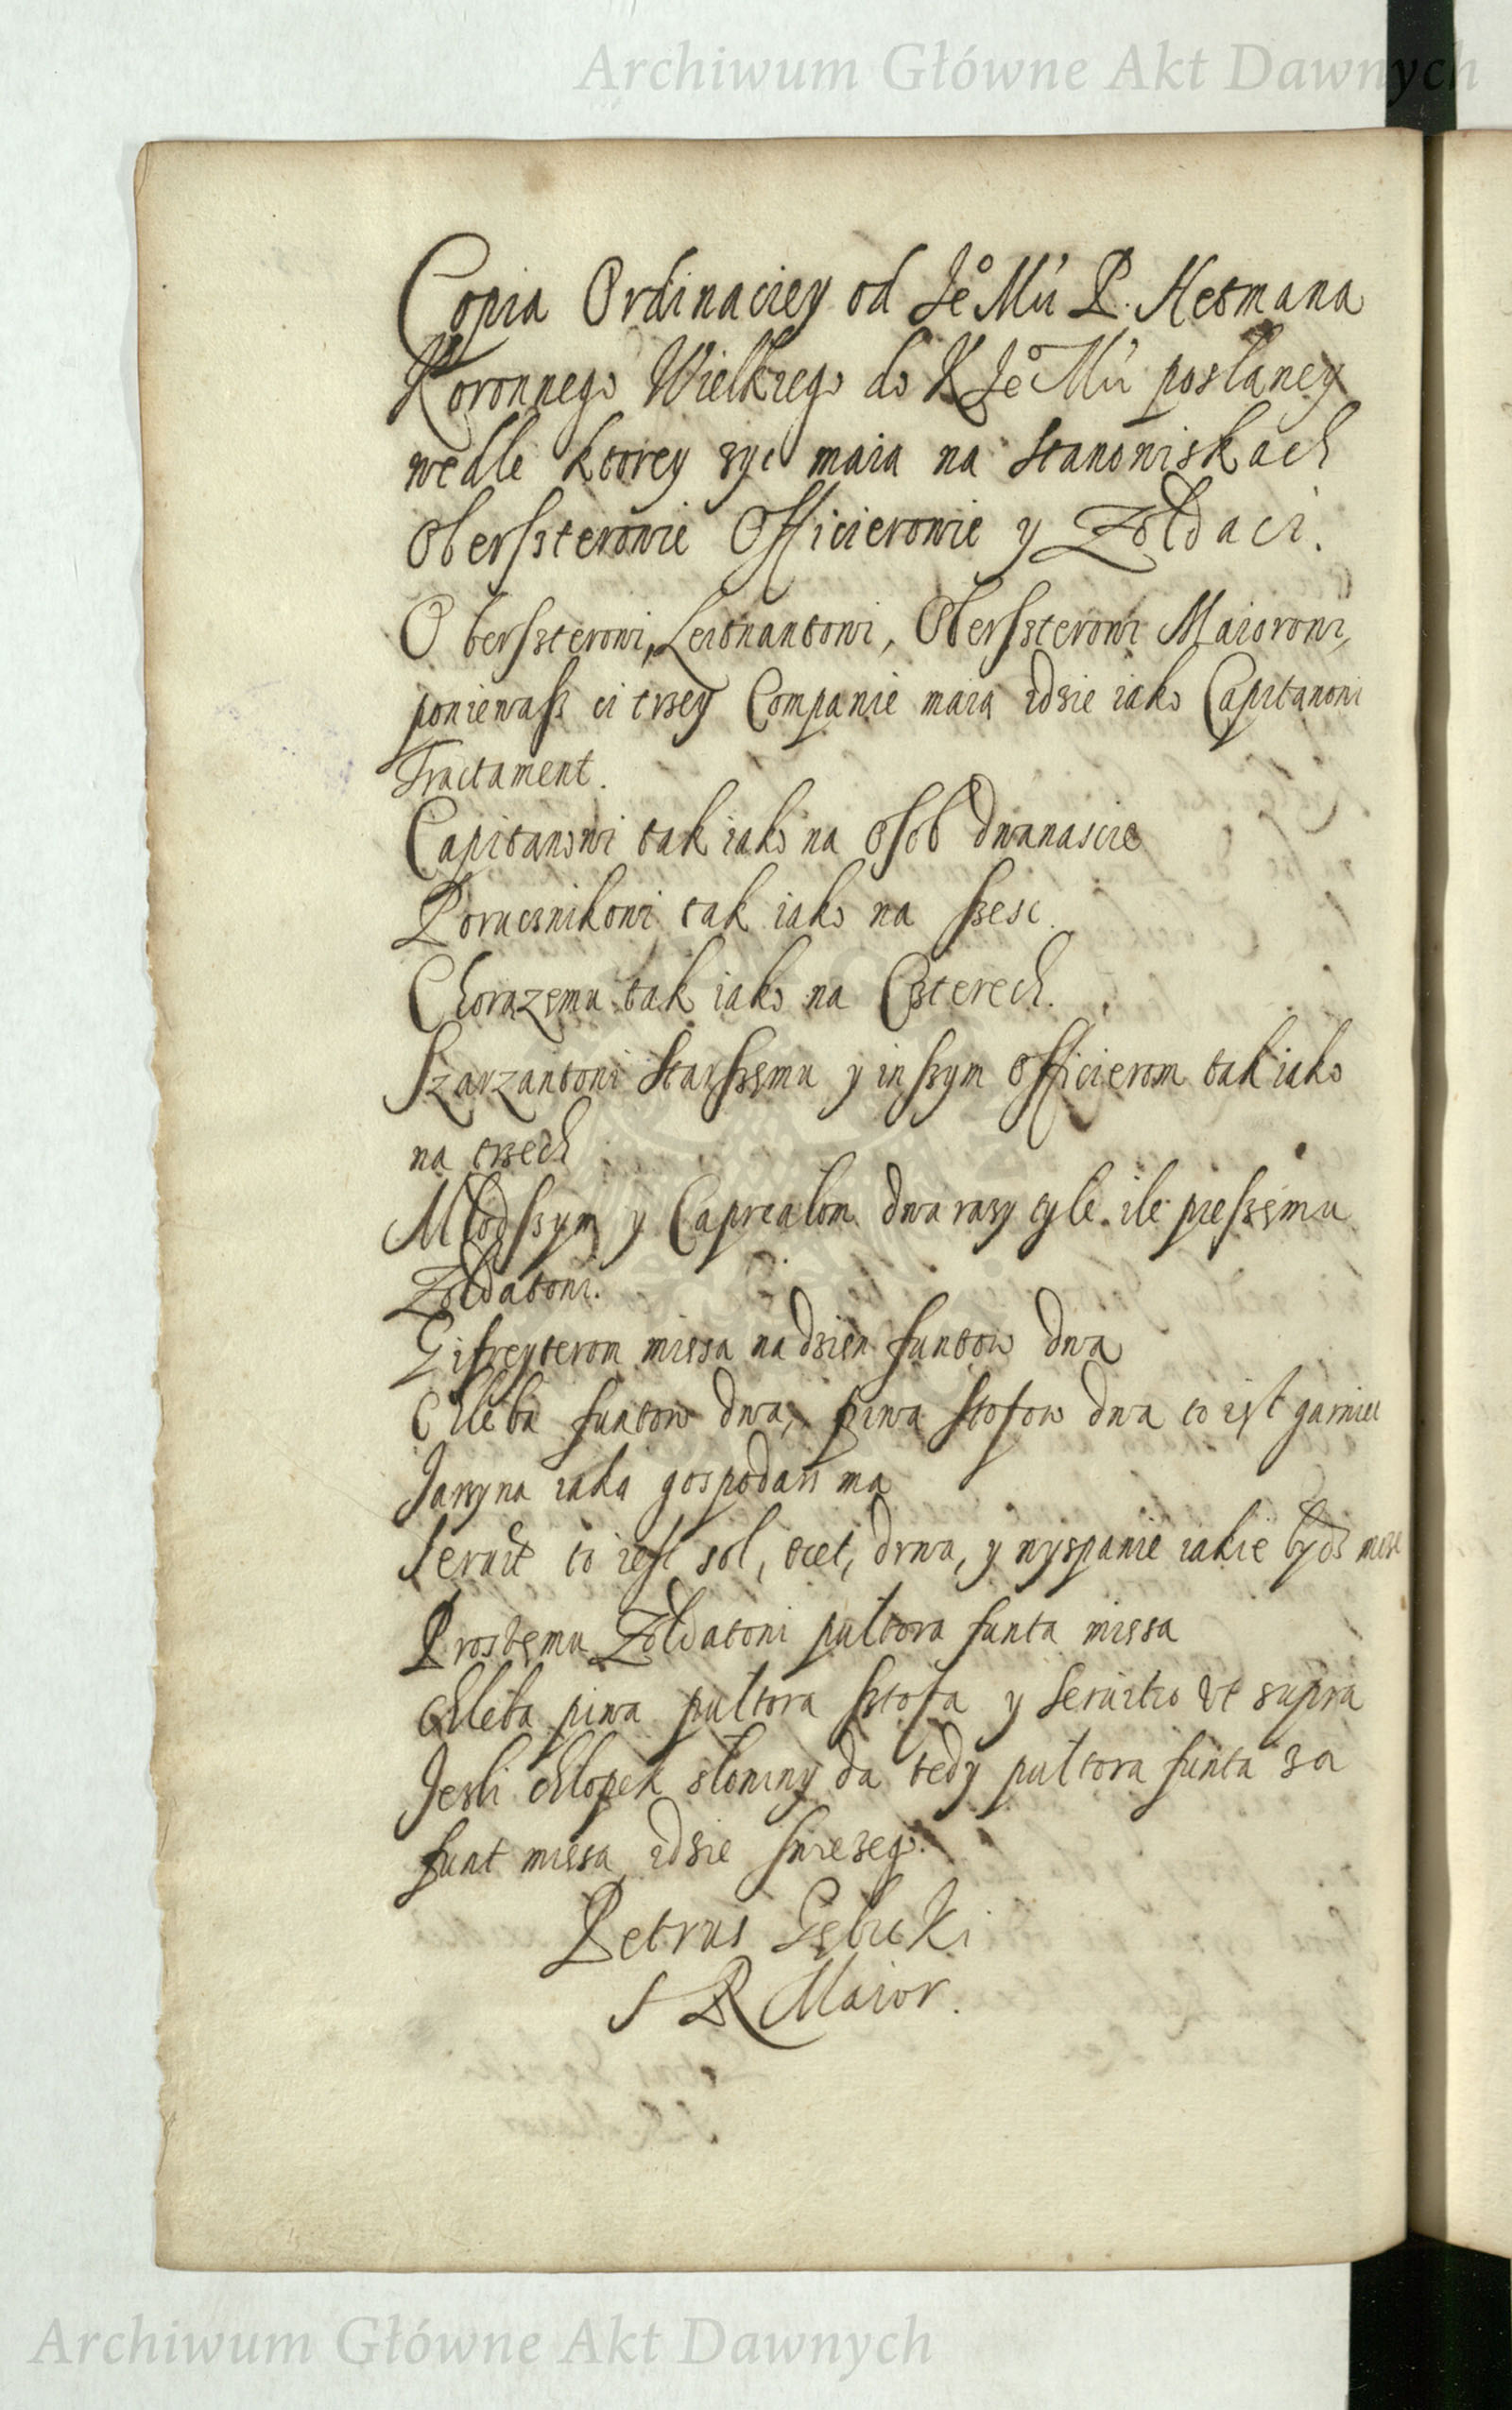 Archiwum Główne Akt Dawnych
Copia Ordinaciey od Je° Mći P. Hetmana
Koronnego Wielkiego do K Je° Mći posłaney
wedle ktorey zyc maia na Stanowiskach
Oberszterowie Officierowie y Zołdaci.
Oberszterowi, Leitnantowi, Oberszterowi Maiorowi,
poniewasz ci trzey Companie maią idzie iako Capitanowi
Tractament.
Capitanowi tak iako na Osob dwanascie
Porucznikowi tak iako na szesc.
Chorązemu tak iako na Czterech.
Szarzantowi Starszemu y inszym Officierom tak iako
na trzech
Młodszym y Capralom dwa razy tyle ile pieszemu
Zołdatowi.
Gifreyterom mięsa na dzien funtow dwa
Chleba funtow dwa, piwa Stofow dwa to iest garniec
Jarzyna iaka gospodarz ma
Seruit to iest sol, ocet, drwa, y wyspanie iakie bydz może
Prostemu Zołdatowi pułtora funta mięsa
Chleba piwa pułtora sztofa y Seruitio vt supra
Jesli chłopek słoniny da tedy pułtora funta za
funt mięsa idzie swiezeg°.
Petrus Gębicki
S R Maior.
Archiwum Główne Akt Dawnych